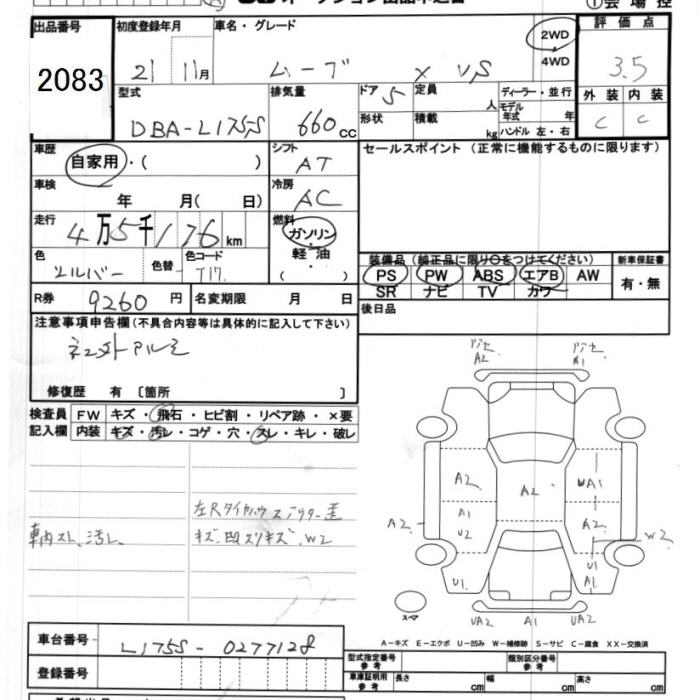 出品番号 初度登録年月 車名・グレード 2WD 評価点
2083 21 11月 ムーブ X VS 4WD 3.5
型式 排気量 ドア 5 定員 人 ディーラー・並行 外装 内装
DBA-L175S 660cc 形状 積載 kg モデル年式 年 C C
ハンドル 左・右
車歴 自家用・( ) シフト AT セールスポイント(正常に機能するものに限ります)
車検 年 月( 日) 冷房 AC
走行 4万5千176km 燃料 ガソリン・軽油 ( )
色 シルバー 色替 色コード T17 装備品(純正品に限り○をつけてください) 新車保証書
PS PW ABS エアB AW 有・無
SR ナビ TV カワ
R券 9260円 名変期限 月 日 後日品
注意事項申告欄(不具合内容等は具体的に記入して下さい)
修復歴 有〔箇所 〕
検査員 FW キズ・飛石・ヒビ割・リペア跡・×要
記入欄 内装 キズ・汚レ・コゲ・穴・スレ・キレ・破レ
車内スレ、汚レ
キズ W2
A2 A1
A2 A2 UA1
A1 U2 A2
A2 W2
U1 U1 A1
スペア UA2 A1 UA2
A-キズ E-エクボ U-凹み W-補修跡 S-サビ C-腐食 XX-交換済
車台番号 L175S-0277128 型式指定番号 参考 類別区分番号 参考
登録番号 車庫証明用 参考 長さ cm 幅 cm 高さ cm